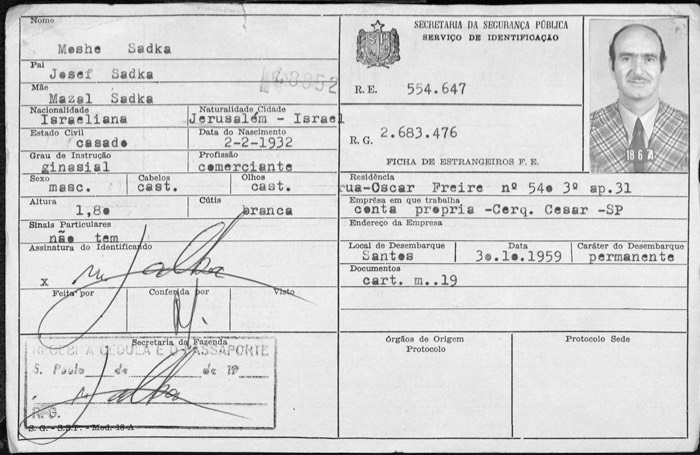 Nome
Moshe Sadka
Pai
Josef Sadka
Mãe
Mazal Sadka
Nacionalidade Naturalidade Cidade
Israeliana Jerusalém - Israel
Estado Civil Data do Nascimento
casado 2-2-1932
Grau de Instrução Profissão
ginasial comerciante
Sexo Cabelos Olhos
masc. cast. cast.
Altura Cútis
1,80 branca
Sinais Particulares
não tem
Assinatura do Identificando
x
Feita por Conferida por Visto
Secretaria da Fazenda
RECEBI A CÉDULA E O PASSAPORTE
S. Paulo de de 19
R. G.
S. G. - S.S.P. - Mod. 18-A
SECRETARIA DA SEGURANÇA PÚBLICA
SERVIÇO DE IDENTIFICAÇÃO
R. E. 554.647
R. G. 2.683.476
FICHA DE ESTRANGEIROS F. E.
18 6 71
Residência
rua-Oscar Freire nº 540 3º ap.31
Emprêsa em que trabalha
conta propria -Cerq. Cesar -SP
Endereço da Empresa
Local de Desembarque Data Caráter do Desembarque
Santos 30.10.1959 permanente
Documentos
cart. m..19
órgãos de Origem
Protocolo
Protocolo Sede